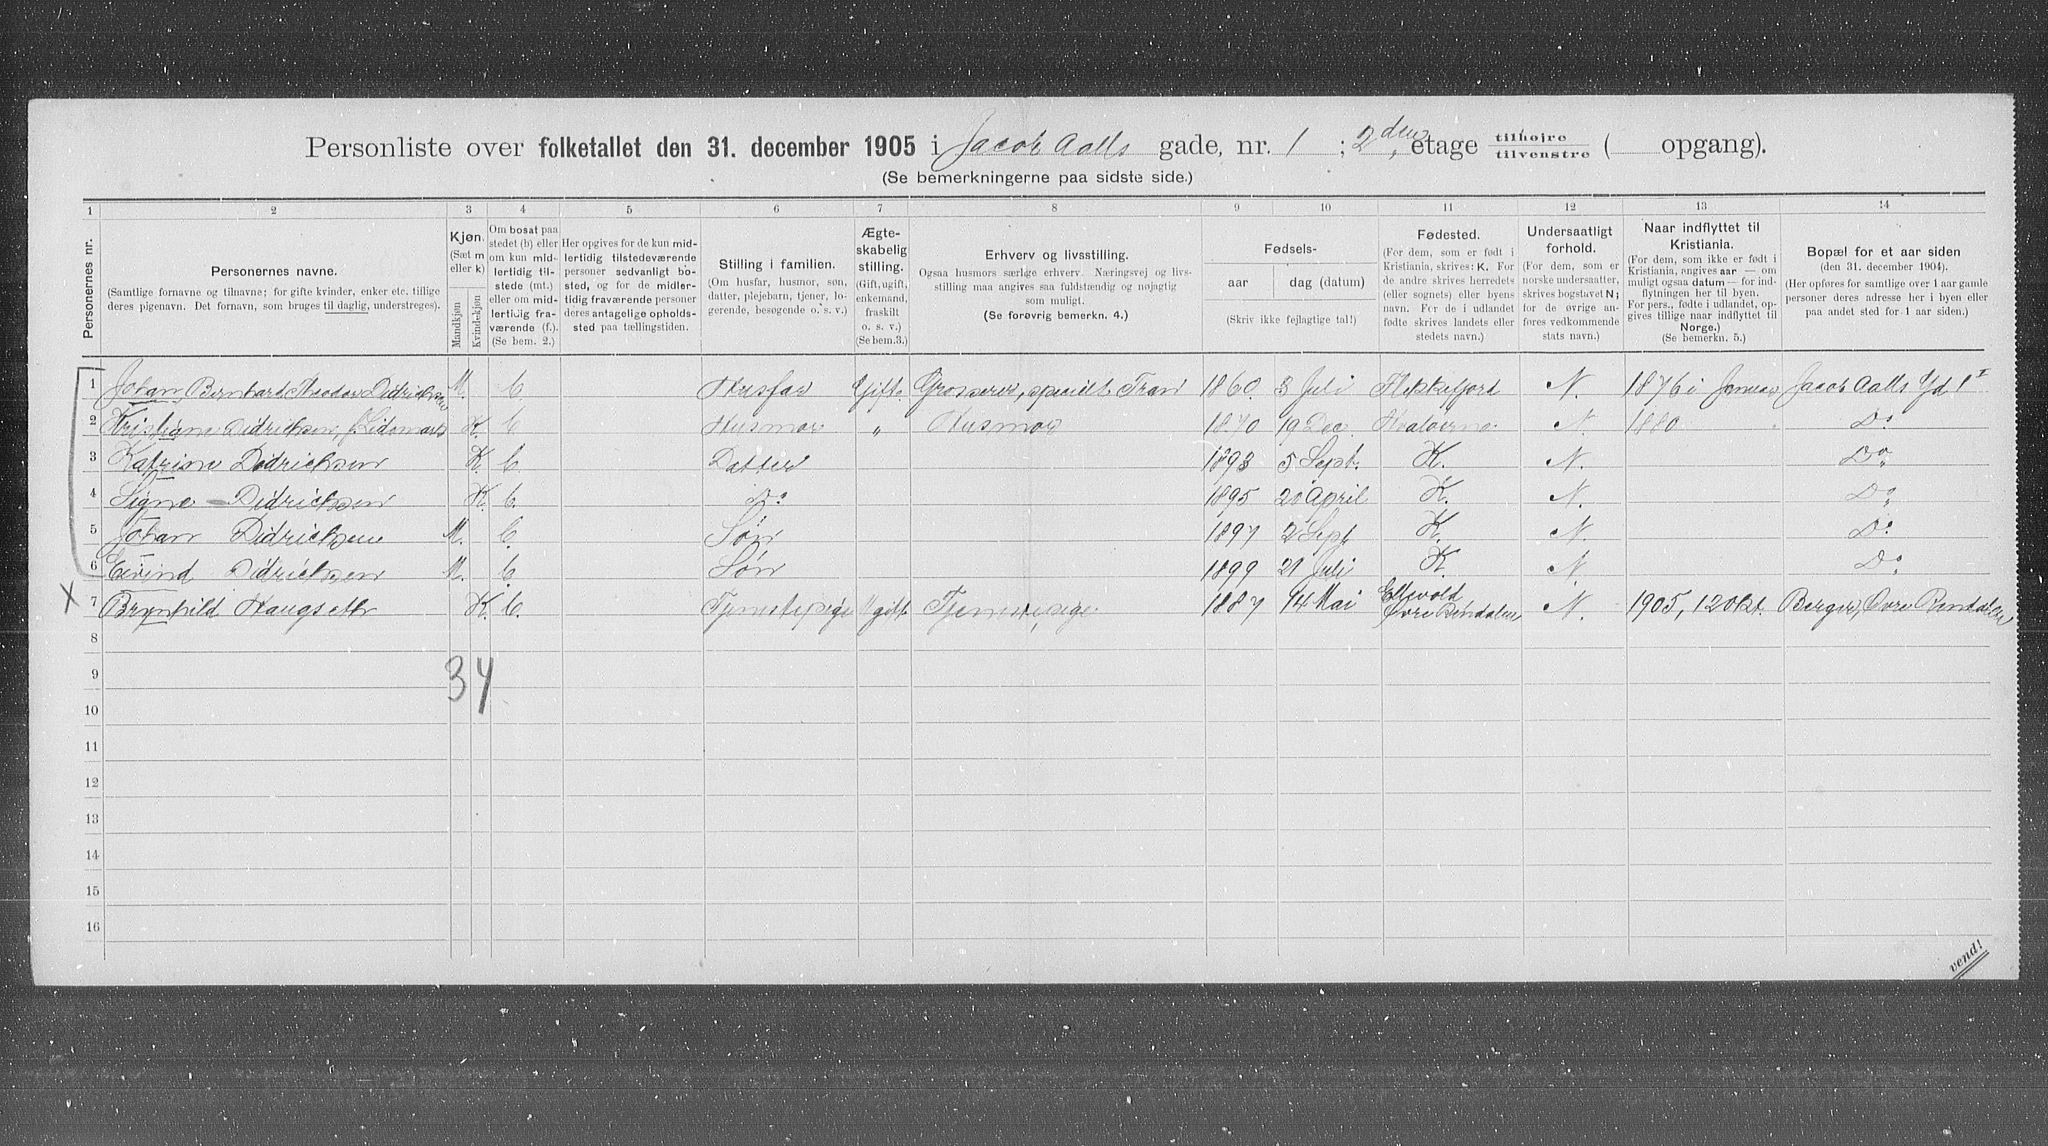 Personliste over folketallet den 31. december 1905 i Jacob Aalls gade, nr. 1 ; 2den etage tilhøjre tilvenstre ( opgang).
(Se bemerkningerne paa sidste side.)
1 2 3 4 5 6 7 8 9 10 11 12 13 14
Personernes nr.
Personernes navne.
(Samtlige fornavne og tilnavne; for gifte kvinder, enker etc. tillige
deres pigenavn. Det fornavn, som bruges til daglig, understreges).
Kjøn.
(Sæt m
eller k)
Mandkjøn
Kvindekjøn
Om bosat paa
stedet (b) eller
om kun mid-
lertidig til-
stede (mt.)
eller om mid-
lertidig fra-
værende (f.)
(Se bem. 2.)
Her opgives for de kun mid-
lertidig tilstedeværende
personer sedvanligt bo-
sted, og for de midler-
tidig fraværende personer
deres antagelige opholds-
sted paa tællingstiden.
Stilling i familien.
(Om husfar, husmor, søn,
datter, plejebarn, tjener, lo-
gerende, besøgende o. s. v.)
Ægte-
skabelig
stilling.
(Gift, ugift,
enkemand,
fraskilt
o. s. v.)
(Se bem.3.)
Erhverv og livsstilling.
Ogsaa husmors særlige erhverv. Næringsvej og livs-
stilling maa angives saa fuldstændig og nøjagtig
som muligt.
(Se forøvrig bemerkn. 4.)
Fødsels-
aar
dag (datum)
(Skriv ikke fejlagtige tal!)
Fødested.
(For dem, som er født i
Kristiania, skrives: K. For
de andre skrives herredets
(eller sognets) eller byens
navn. For de i udlandet
fødte skrives landets eller
stedets navn.)
Undersaatligt
forhold.
(For dem, som er
norske undersaatter,
skrives bogstavet N;
for de øvrige an-
føres vedkommende
stats navn.)
Naar indflyttet til
Kristiania.
(For dem, som ikke er født i
Kristiania, angives aar — om
muligt ogsaa datum — for ind-
flytningen her til byen.
For pers., fødte i udlandet, op-
gives tillige naar indflyttet til
Norge.)
(Se bemerkn. 5.)
Bopæl for et aar siden
(den 31. december 1904).
(Her opføres for samtlige over 1 aar gamle
personer deres adresse her i byen eller
paa andet sted for 1 aar siden.)
1 Johan Bernhard Theodor Didrichsen M. b. Husfar Gift Grosserer, specielt Tran 1860. 3 Juli Flekkefjord N. 1876 i Jacob Aalls Gd 1 I
2 Kristiane Didrichsen, K. b. Husmor „ Husmor 1870 19 Dec. Hvaløerne N. 1880 Do
3 Katrine Didrichsen K. b. Datter 1893 5 Sept. K. N. Do
4 Signe Didrichsen K. b. Do 1895 20 April K. N. Do
5 Johan Didrichsen M. b. Søn 1897 2 Sept K. N. Do
6 Eivind Didrichsen M. b. Søn 1899 21 Juli K N. Do
x 7 Brynhild Haugseth K. b. Tjenestepige Ugift Tjenestepige 1887 14 Mai Øvre Rendalen N. 1905, 12 Okt. Berger, Øvre Rendalen
8
9
34
10
11
12
13
14
15
16
vend!